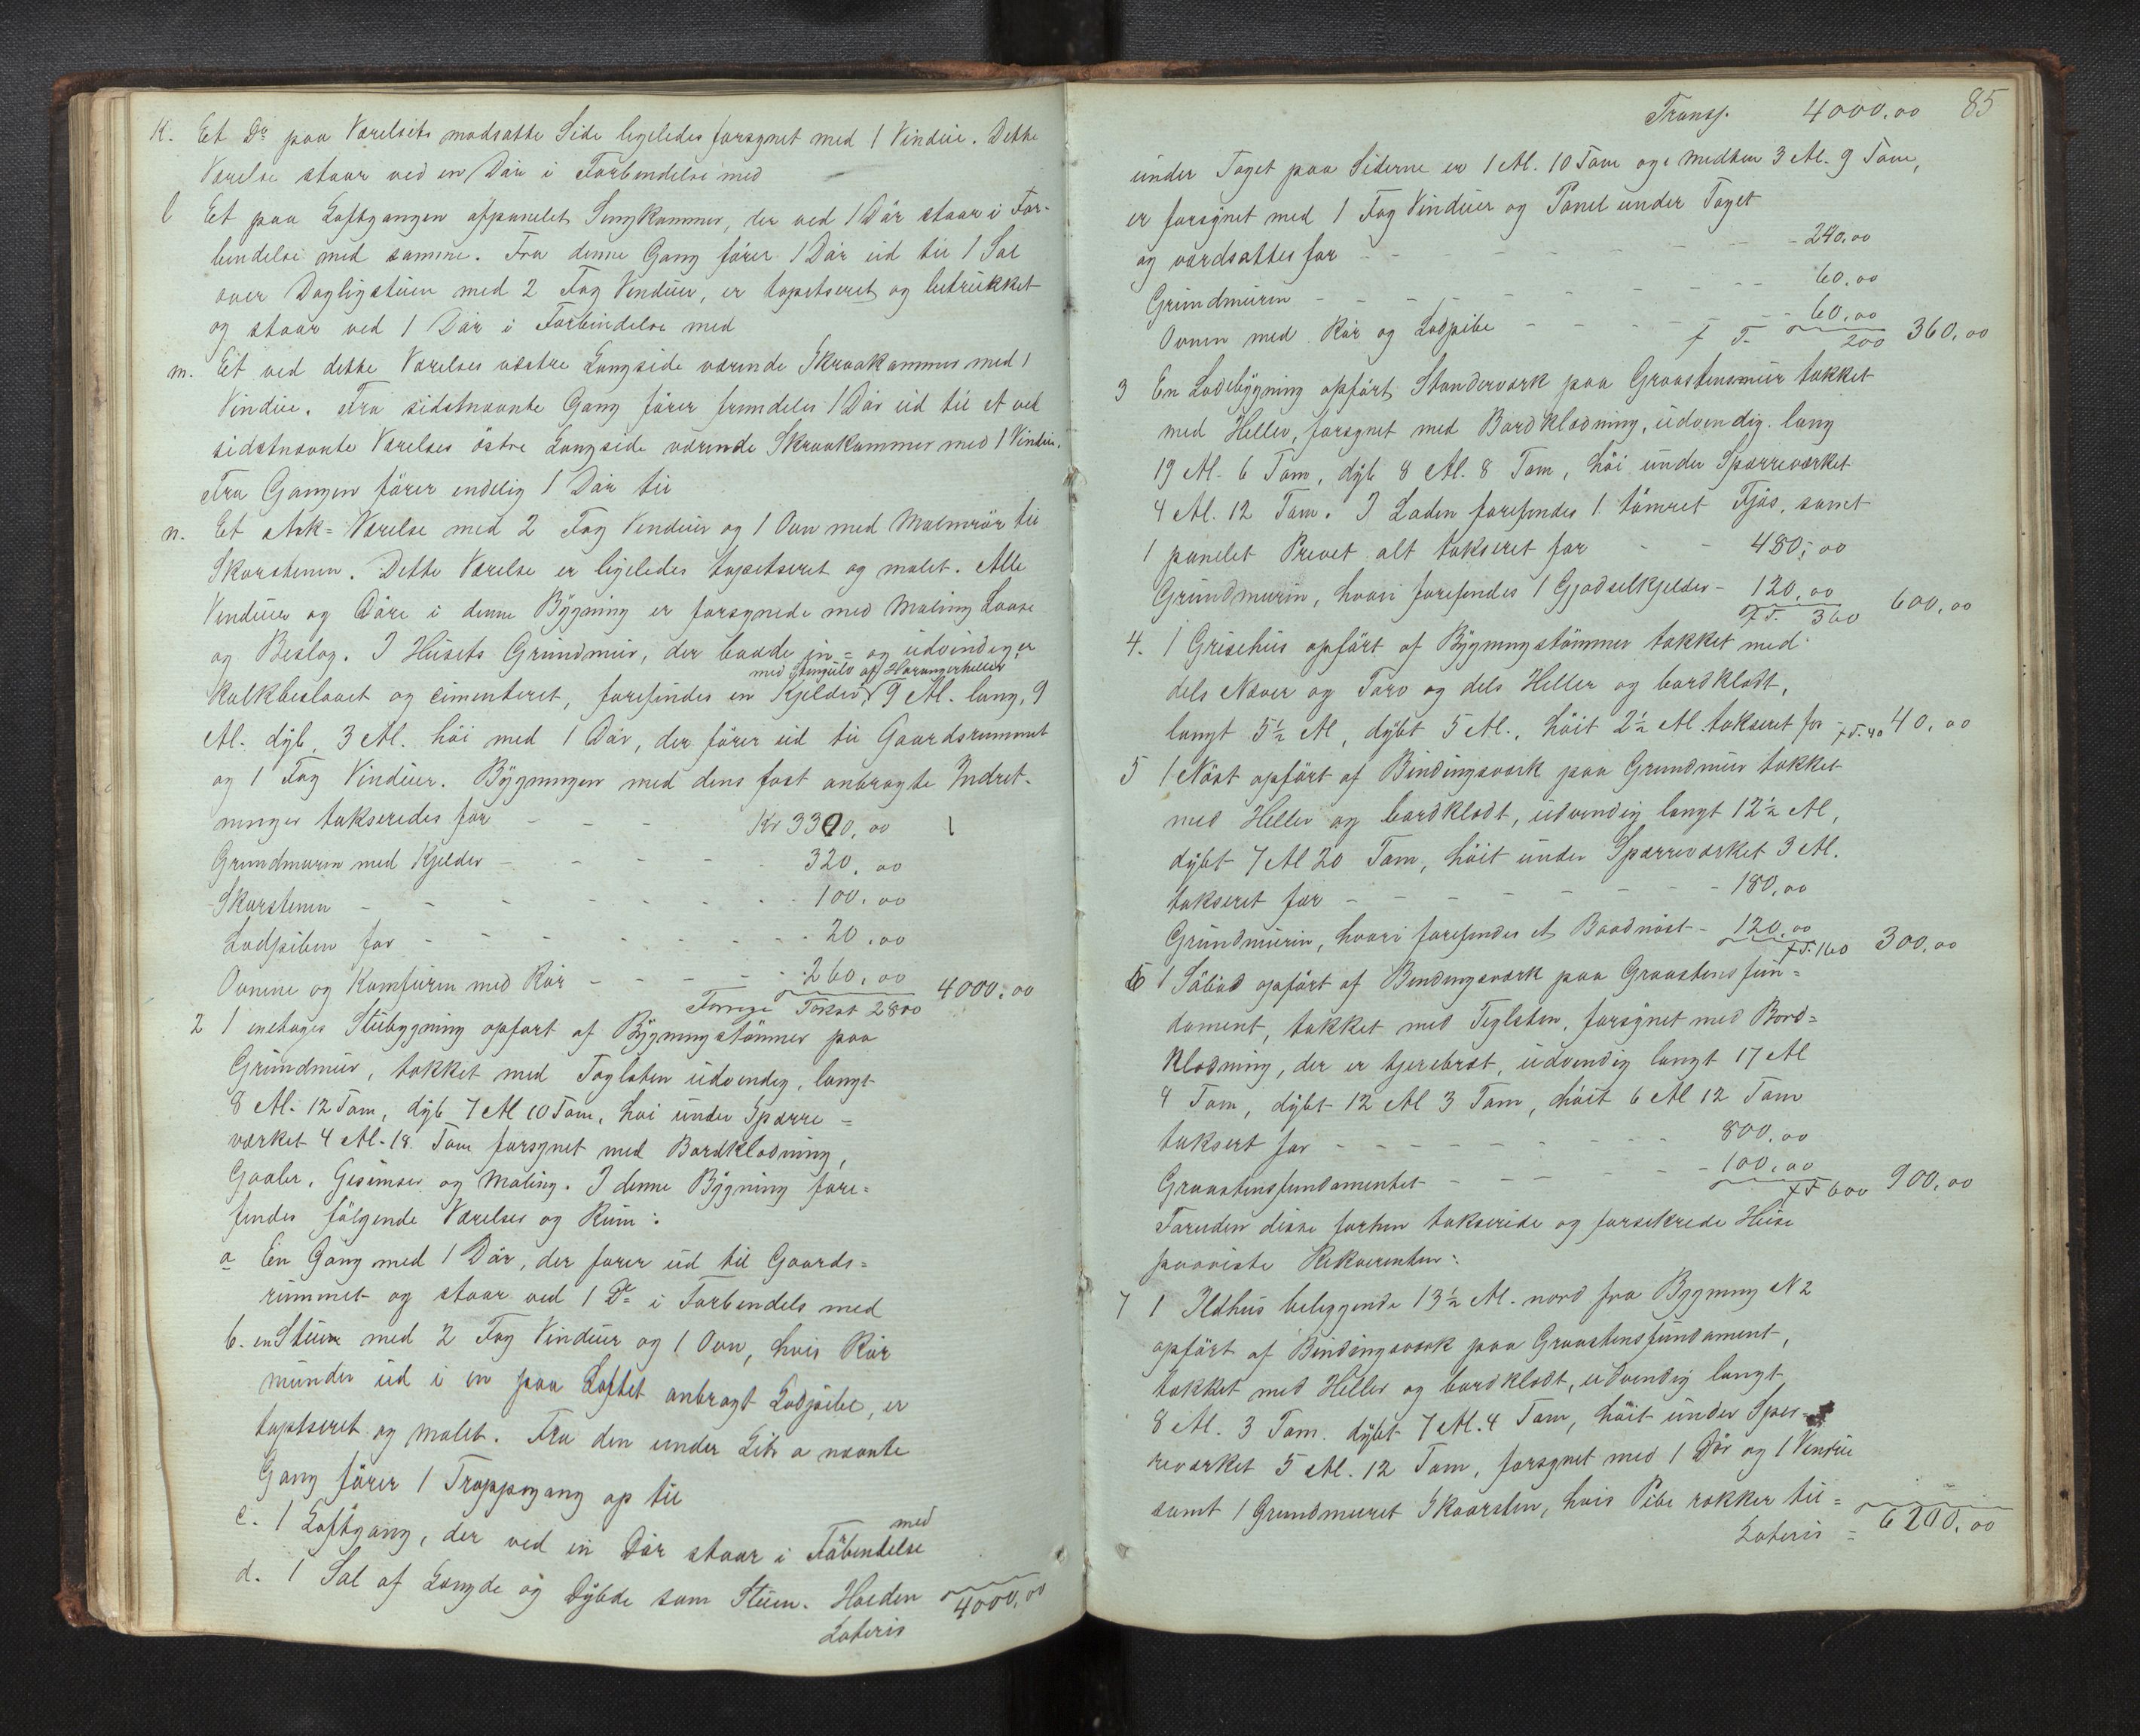 K. Et Do paa Værelsets modsatte Side ligeledes forsynet med 1 Vindue. Dette
Værelse staar ved en Dör i Forbindelse med
l Et paa Loftgangen afpanelet Sengkammer, der ved 1 Dör staar i For-
bindelse med samme. Fra denne Gang förer 1 Dör ud til 1 Sal
over Dagligstuen med 2 Fag Vinduer, er tapetseret og betrukket
og staar ved 1 Dör i Forbindelse med
m. Et ved dette Værelses vestre Langside værende Skraakammer med 1
Vindue. Fra sidstnævnte Gang förer fremdeles 1 Dör ud til et ved
sidstnævnte Værelses östre Langside værende Skraakammer med 1 Vindue.
Fra Gangen förer endelig 1 Dör til
n. Et Ark=Værelse med 2 Fag Vinduer og 1 Ovn med Malmrör til
Skorstenen. Dette Værelse er ligeledes tapetseret og malet. Alle
Vinduer og Döre i denne Bygning er forsynede med Maling Laase
og Beslag. I Husets Grundmur, der baade in= og udvendig er
med Stengulv af Harangerheller
kalkbeslaaet og cimenteret, forefindes en Kjelder, 9 Al. lang, 9
Al. dyb, 3 Al. höi med 1 Dör, der förer ud til Gaardsrummet
og 1 Fag Vinduer. Bygningen med dens fast anbragte Indret-
ninger takseredes for - - - Kr 3300,00
Grundmuren med Kjelder - - - 320,00
Skorstenen - - - 100,00
Lodpiben for - - - 20,00
Ovnene og Komfuren med Rör - - - 260,00 4000,00
Forrige Takst 2800
2 1 enetages Stuebygning opfört af Bygningstömmer paa
Grundmur, tækket med Taglsten udvendig, langt
8 Al. 12 Tom, dyb 7 Al 10 Tom, höi under Sparre=
værket 4 Al. 18. Tom forsynet med Bordklædning,
Gesimser og Maling. I denne Bygning fore=
findes fölgende Værelser og Rum:
a En Gang med 1 Dör, der förer ud til Gaards=
rummet og staar ved 1 Do i Forbindels med
b. en Stue med 2 Fag Vinduer og 1 Ovn, hvis Rör
munder ud i en paa Loftet anbragt Lodpibe, er
taptseret og malet. Fra den under Litr a nævnte
Gang förer 1 Trappegang op til
c. 1 Loftgang, der ved en Dör staar i Fobindelse med
d. 1 Sal af Længde og Dybde som Stuen. Høiden
Lateris 4000,00
Transp. 4000,00 85
under Taget paa Siderne er 1 Al. 10 Tom og i Midten 3 Al. 9 Tom,
er forsynet med 1 Fag Vinduer og Panel under Taget
og værdsattes for - - - 240,00
Grundmuren - - - 60,00
Ovnen med Rör og Lodpibe - - - 60,00 360,00
f T. 200
3 En Ladebygning opfört Standerværk paa Graastensmur tækket
med Heller, forsynet med Bordklædning, udvendig lang
19 Al. 6 Tom, dyb 8 Al. 8 Tom, höi under Sparreværket
4 Al. 12 Tom. I Laden forefindes 1 tömret Fjös, samt
1 panelet Privet alt takseret for - - 480,00
Grundmuren, hvori forefindes 1 Gjødselkjelder - 120,00 600,00
f T. 360
4. 1 Grisehus opfört af Bygningstömmer tækket med
dels Næver og Torv og dels Heller og bordklædt,
langt 5½ Al, dybt 5 Al., höit 2½ Al takseret for - f T. 40 40,00
5 1 Nöst opfört af Bindingsværk paa Grundmur tækket
med Heller og bordklædt, udvendig langt 12½ Al,
dybt 7 Al 20 Tom, höit under Sparreværket 3 Al.
takseret for - - - 180,00
Grundmuren, hvori forefindes et Baadnöst - 120,00 300,00
f T. 160
6 1 Söbod opfört af Bindingsværk paa Graastensfun=
dament, tækket med Teglsten, forsynet med Bord=
klædning, der er tjærebræt, udvendig langt 17 Al
4 Tom, dybt 12 Al 3 Tom, höit 6 Al 12 Tom
taksert for - - - 800,00
Graastensfundamentet - - - 100,00 900,00
f T 600
Foruden disse forhen takserede og forsikrede Huse
paaviste Rekvirenten:
7 1 Ildhus beliggende 13½ Al. nord fra Bygning N 2
opfört af Bindingsværk paa Graastensfundament,
tækket med Heller og bordklædt, udvendig langt
8 Al. 3 Tom. dybt 7 Al. 4 Tom, höit under Sper=
reværket 5 Al. 12 Tom, forsynet med 1 Dör og 1 Vindue
samt 1 Grundmuret Skorsten, hvis Pibe rækker til=
Lateris = 6200,00